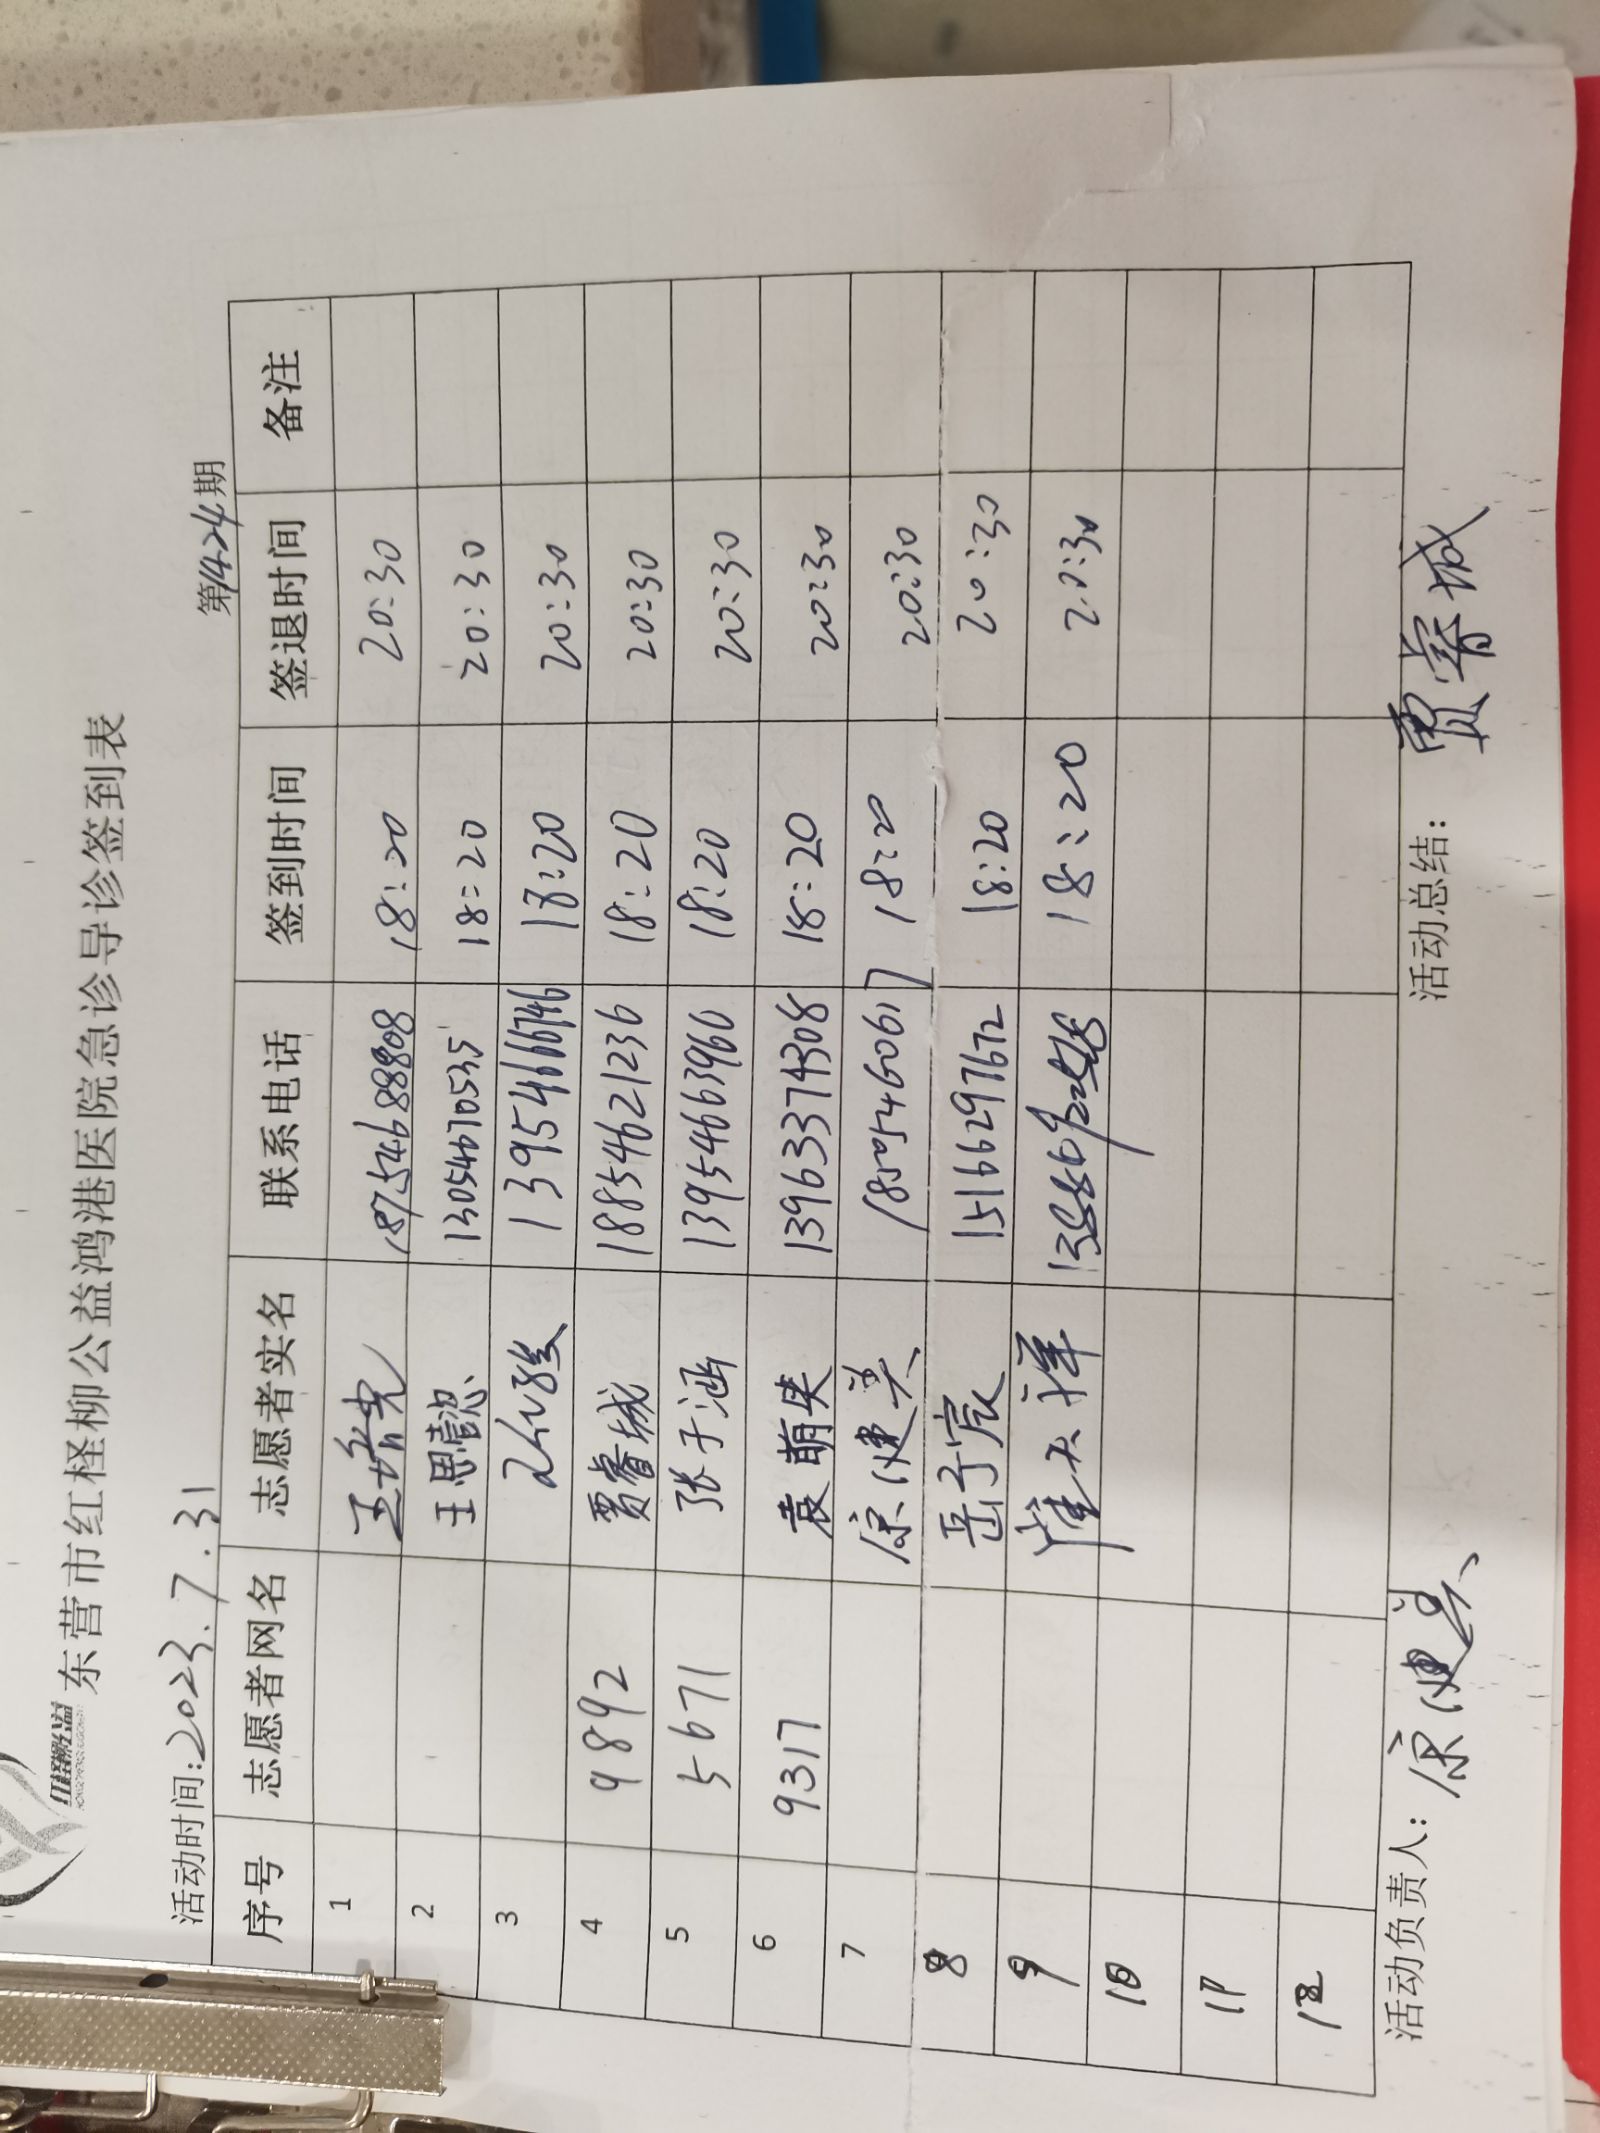 红柽柳公益
东营市红柽柳公益鸿港医院急诊导诊签到表
活动时间:2023.7.31 第1424期
序号 志愿者网名 志愿者实名 联系电话 签到时间 签退时间 备注
1 18754688808 18:20 20:30
2 王思懿 13054670535 18:20 20:30
3 18:20 20:30
4 9892 贾睿城 18854621236 18:20 20:30
5 5671 张子涵 13954663960 18:20 20:30
6 9317 袁萌 13963374308 18:20 20:30
7 18505460617 18:20 20:30
8 岳子宸 15166297672 18:20 20:30
9 崔天祥 18:20 20:30
10
11
12
活动负责人: 活动总结: 贾睿城